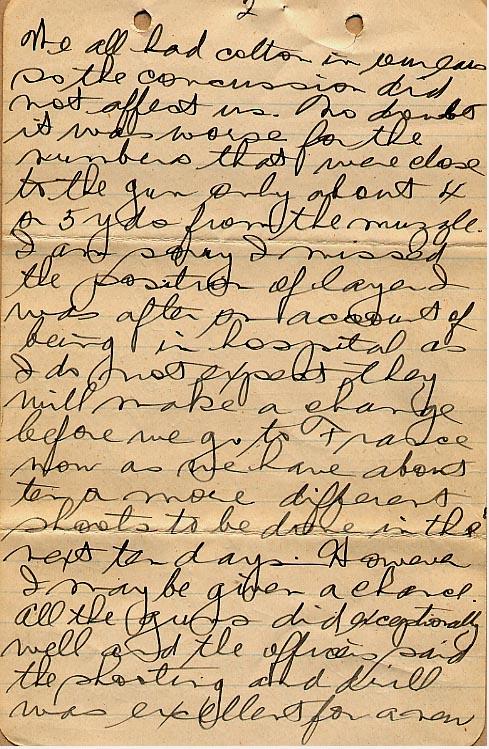 2
We all had cotton in our ears
so the concussion did
not affect us. No doubt
it was worse for the
numbers that were close
to the gun only about 4
or 5 yds from the muzzle.
I am sorry I missed
the position of layer I
was after on account of
being in hospital as
I do not expect they
will make a change
before we go to France
now as we have about
ten more different
shoots to be done in the
next ten days. However
I may be given a chance.
All the guns did exceptionally
well and the officers said
the shooting and drill
was excellent for a new